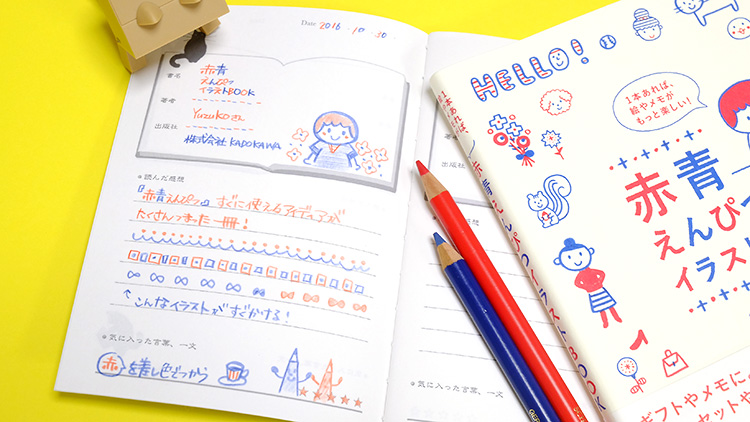 Date 2016 . 10 . 30 .
書名
赤青
えんぴつ
イラストBOOK
著者
Yuzukoさん
出版社
株式会社 KADOKAWA
読んだ感想
『赤青えんぴつ』すぐに使えるアイデアが
たくさんつまった一冊!
↑こんなイラストがすぐかける!
気に入った言葉、一文
赤を差し色でつかう
気に入った言葉、一文
HELLO!
1本あれば、
絵やメモが
もっと楽しい!
赤青
えんぴつ
イラスト
ギフトやメモに
セットや
1本あれば、
絵やメモが
赤青えんぴつイラストBOOK